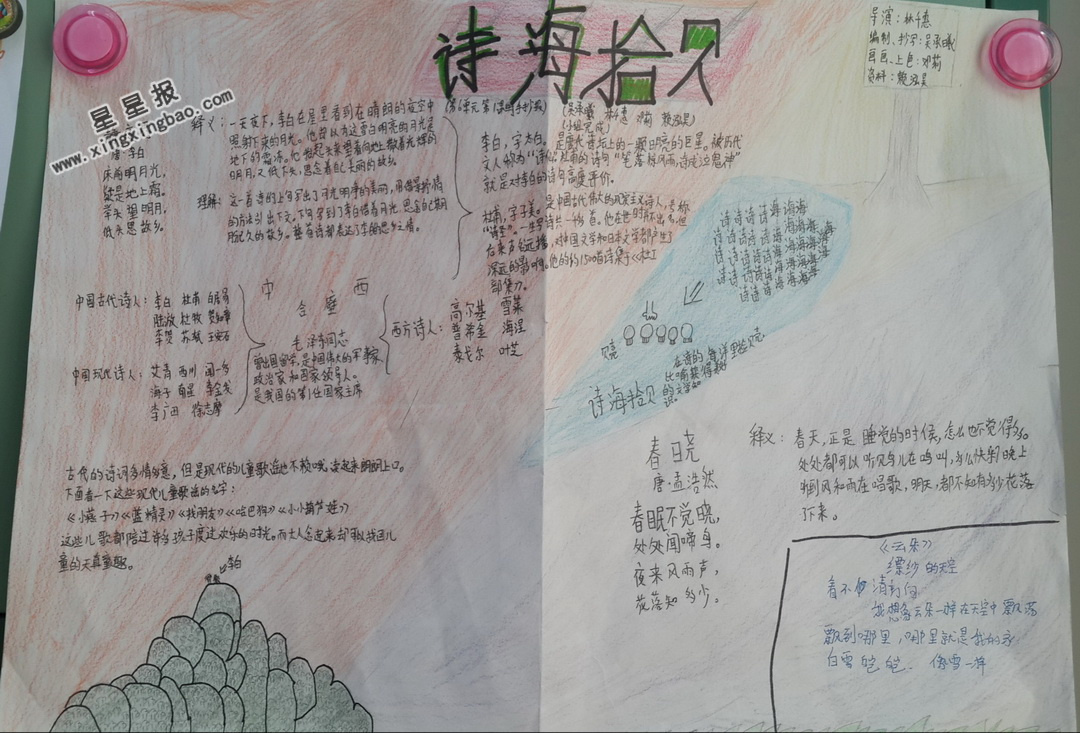 诗海拾贝
导演：林千惠
编制、抄写：吴承曦
画画、上色：邓莉
资料：魏泓昊
星星报
www.xingxingbao.com
唐·李白
床前明月光，
疑是地上霜。
举头望明月，
低头思故乡。
释义：一天夜下，李白在屋里看到在晴朗的夜空中
照射下来的月光。
明月，又低下头，思念着自己美丽的故乡。
理解：这一首诗的上句写出了月光明净的美丽，用借景抒情
的方法引出下文，下句写到了李白借着月光，思念自己期
盼已久的故乡。整首诗都表达了李白的思乡之情。
(小组完成)
李白，字太白。是唐代诗坛上的一颗明亮的巨星。被历代
文人称为"诗仙"杜甫的诗句"笔落惊风雨，诗成泣鬼神"
就是对李白的诗句高度评价。
杜甫，字子美。是中国古代伟大的现实主义诗人，
后来声名远播，对中国文学和日本文学都产生了
深远的影响。他的约1500首诗集于《杜工
部集》。
中国古代诗人：李白 杜甫 白居易
陆游 杜牧 贺知章
李贺 苏轼 王安石
中国现代诗人：艾青 西川 闻一多
海子 李金发
李广田 徐志摩
中 西
合璧
毛泽东同志
曾出国留学，是中国伟大的军事家
政治家和国家领导人。
是我国的第1任国家主席
西方诗人：高尔基 雪莱
普希金 海涅
泰戈尔 叶芝
诗诗诗诗海海海
贝壳
诗海拾贝
在诗的海洋里捡贝壳
比喻获得
古代的诗词多情多意，但是现代的儿童歌谣也不赖哦，读起来朗朗上口。
下面看一下这些现代儿童歌谣的名字：
《小燕子》《蓝精灵》《找朋友》《哈巴狗》《小小葫芦娃》
这些儿歌都陪过许多孩子度过欢乐的时光。而大人念起来却可以找回儿
童的天真童趣。
李白
春晓
唐 孟浩然
春眠不觉晓，
处处闻啼鸟。
夜来风雨声，
花落知多少。
释义：春天，正是睡觉的时候，怎么也不觉得多。
处处都可以听见鸟儿在鸣叫，多么快乐！晚上
听到风和雨在唱歌，明天，都不知有多少花落
下来。
《云朵》
缥纱的天空
看不
我想白云朵一样在天空中飘荡
飘到哪里，哪里就是我的家
白雪皑皑、像雪一样